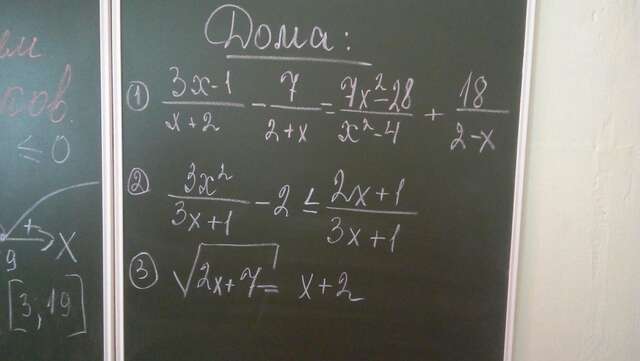 ем
ков.
≤ 0
+ x
9
[3; 19]
Дома:
① (3x-1)/(x+2) - 7/(2+x) = (7x²-28)/(x²-4) + 18/(2-x)
② 3x²/(3x+1) - 2 ≤ (2x+1)/(3x+1)
③ √(2x+7) = x+2